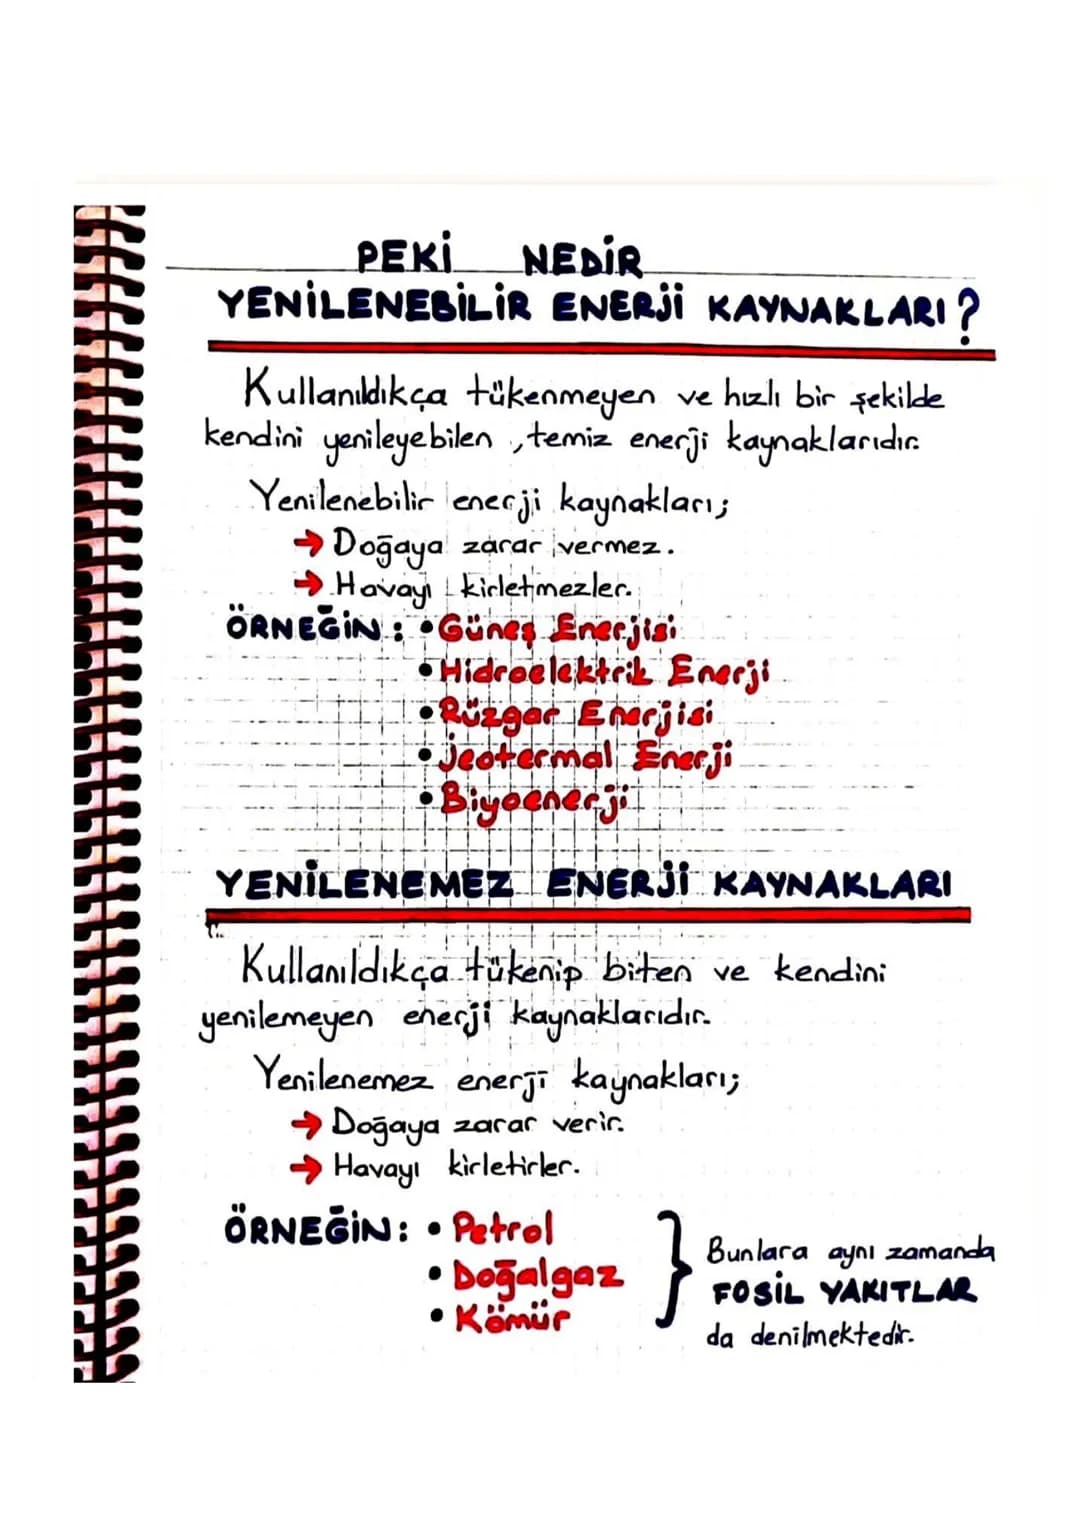 PEKİ NEDİR
YENİLENEBİLİR ENERJİ KAYNAKLARI?
Kullanıldıkça tükenmeyen ve hızlı bir şekilde
kendini yenileyebilen, temiz enerji kaynaklarıdır.
Yenilenebilir enerji kaynakları;
→ Doğaya zarar vermez.
→ Havayı kirletmezler.
ÖRNEĞİN: • Güneş Enerjisi
• Hidroelektrik Enerji
• Rüzgar Enerjisi
• Jeotermal Enerji
• Biyoenerji
YENİLENEMEZ ENERJİ KAYNAKLARI
Kullanıldıkça tükenip biten ve kendini
yenilemeyen enerji kaynaklarıdır.
Yenilenemez enerji kaynakları;
→ Doğaya zarar verir.
→ Havayı kirletirler.
ÖRNEĞİN: • Petrol
• Doğalgaz
• Kömür
Bunlara aynı zamanda
FOSİL YAKITLAR
da denilmektedir.